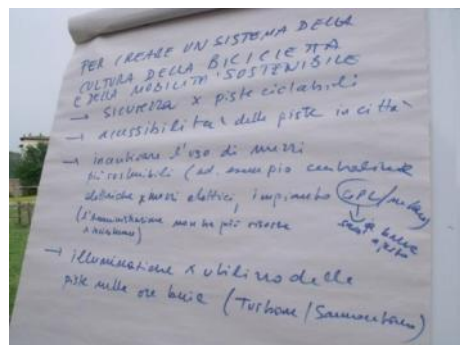 PER CREARE UN SISTEMA DELLA
CULTURA DELLA BICICLETTA
E DELLA MOBILITÀ SOSTENIBILE
→ sicurezza x piste ciclabili
→ accessibilità delle piste in città
→ incentivare l'uso di mezzi
più sostenibili (ad. esempio centraline
elettriche x mezzi elettrici, impianto GPL/metano)
(l'amministrazione non ha più risorse
→ illuminazione x utilizzo delle
piste nelle ore buie (Turbone/Sammontana)